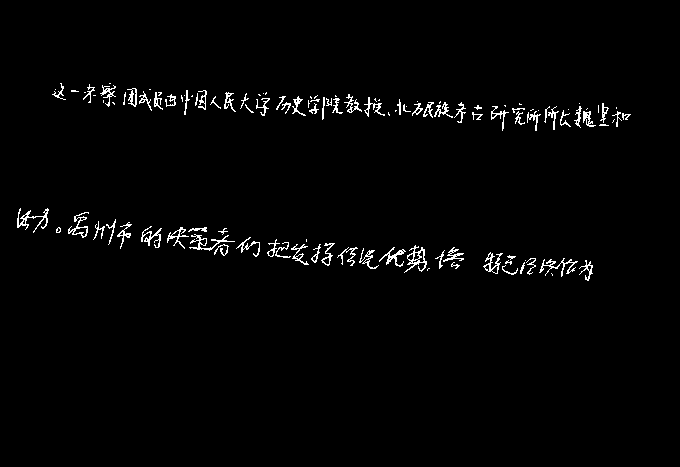 这一考察团成员由中国人民大学历史学院教授、北方民族考古研究所所长魏坚和
活力。禹州市的决策者们把发挥传统优势、培 特色经济作为